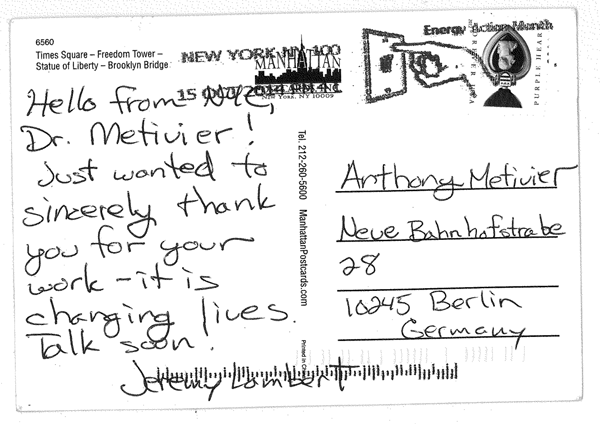 6560
Times Square – Freedom Tower –
Statue of Liberty – Brooklyn Bridge
NEW YORK NY 100
MANHATTAN
NEW YORK, NY 10009
Energy Action Month
PURPLE HEART
Hello from NYC,
Dr. Metivier!
Just wanted to
sincerely thank
you for your
work – it is
changing lives.
Talk soon!
Jeremy Lambert
Tel. 212-260-5600 ManhattanPostcards.com
Printed in China
Anthony Metivier
Neue Bahnhofstraße
28
10245 Berlin
Germany